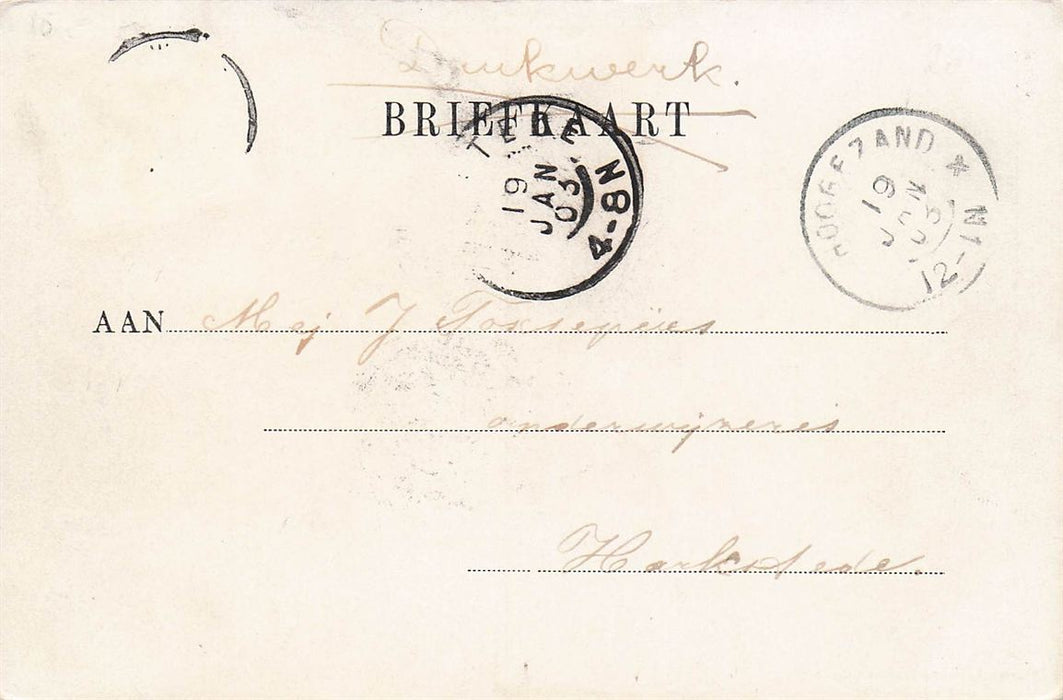 Drukwerk.
BRIEFKAART
HOOGEZAND *
19
JAN
03
12-1N
19
JAN
03
4-8N
AAN Mej J
onderwijzeres
Harkstede.